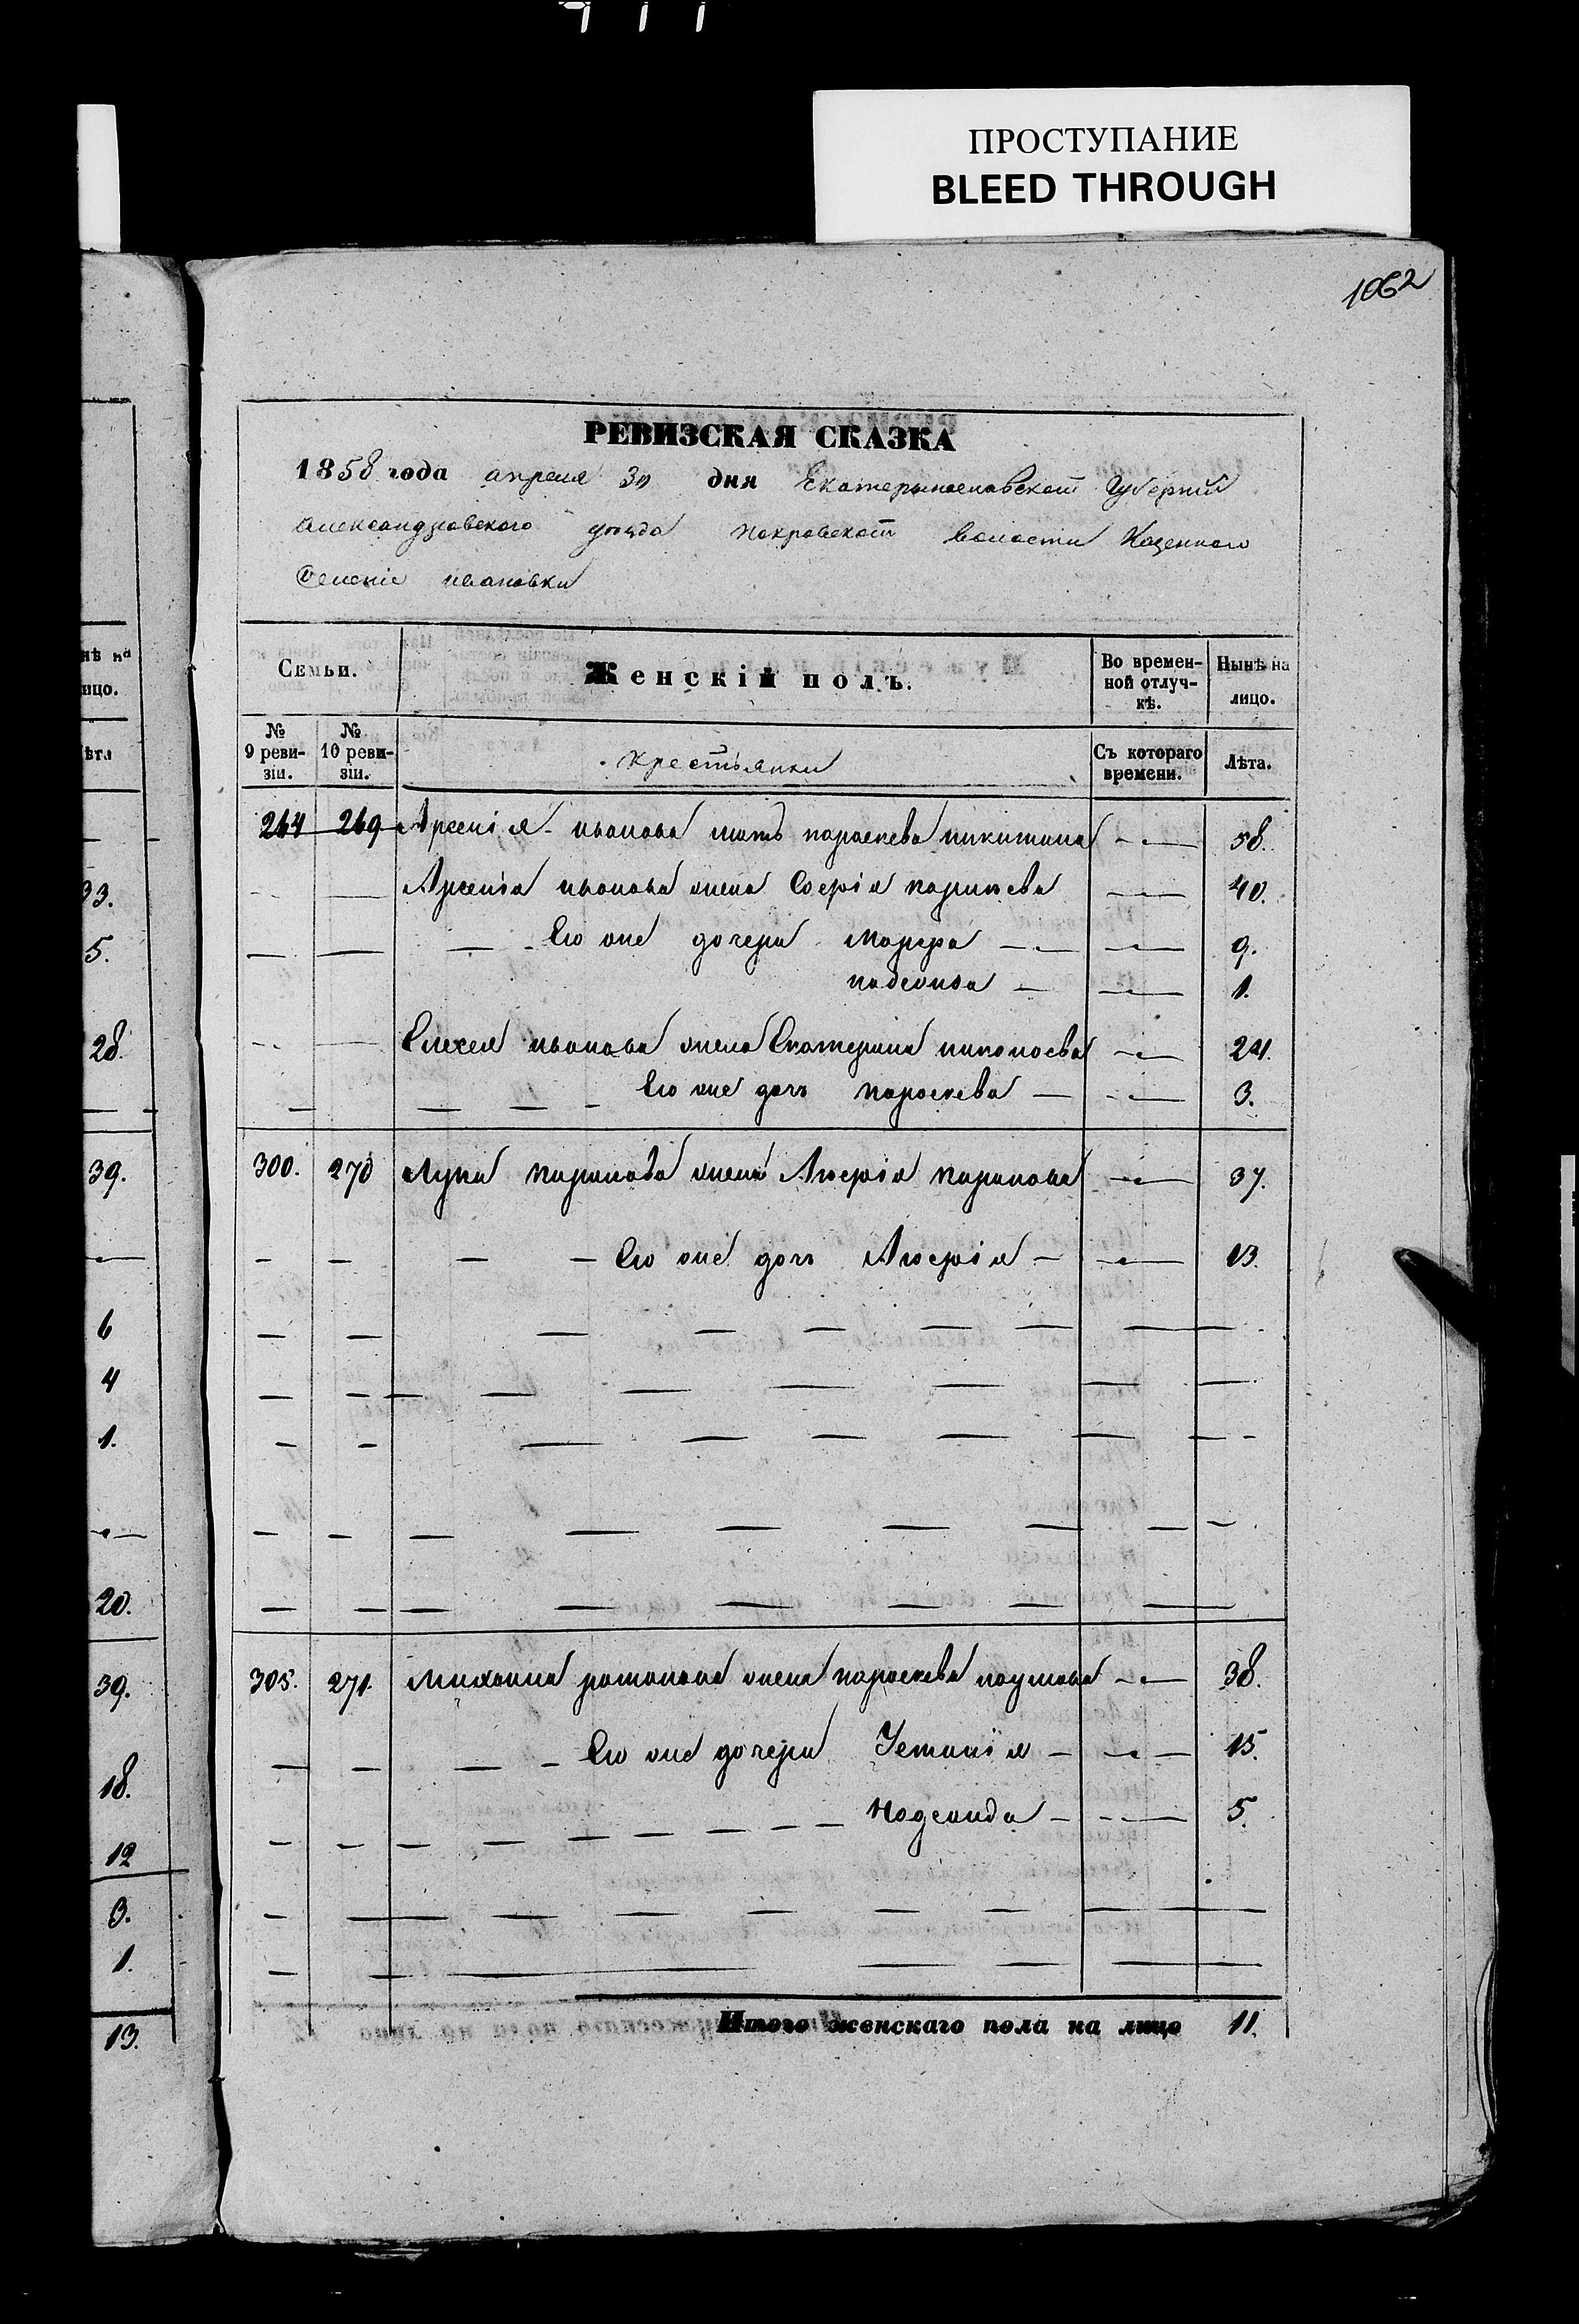 ПРОСТУПАНИЕ
BLEED THROUGH
1062
РЕВИЗСКАЯ СКАЗКА
1858 года апреля 30 дня Екатериославской Губернии
Александровского уезда покровской волости Казенного
Селенiе ивановки
Семьи.
Женскій полъ.
Во времен-
ной отлуч-
кѣ.
Нынѣ на
лицо.
№
9 реви-
зіи.
№
10 реви-
зіи.
крестьянки
Съ котораго
времени.
Лѣта.
264 269 Арсенія иванова мать параскева никитина 58.
Арсенія иванова жена Софія 40.
Его же дочери Марфа 9.
надежда 1.
иванова жена Екатерина 24.
Его же дочь параскева 3.
300. 270 Луки жена 37.
Его же дочь 13.
305. 271. Михаила романова жена параскева наумова 38.
Его же дочери Устинія 15.
Надежда 5.
Итого женскаго пола на лицо 11.
нѣ на
ицо.
ѣта
33.
5.
28.
39.
6
4
1.
20.
39.
18.
12
3.
1.
13.